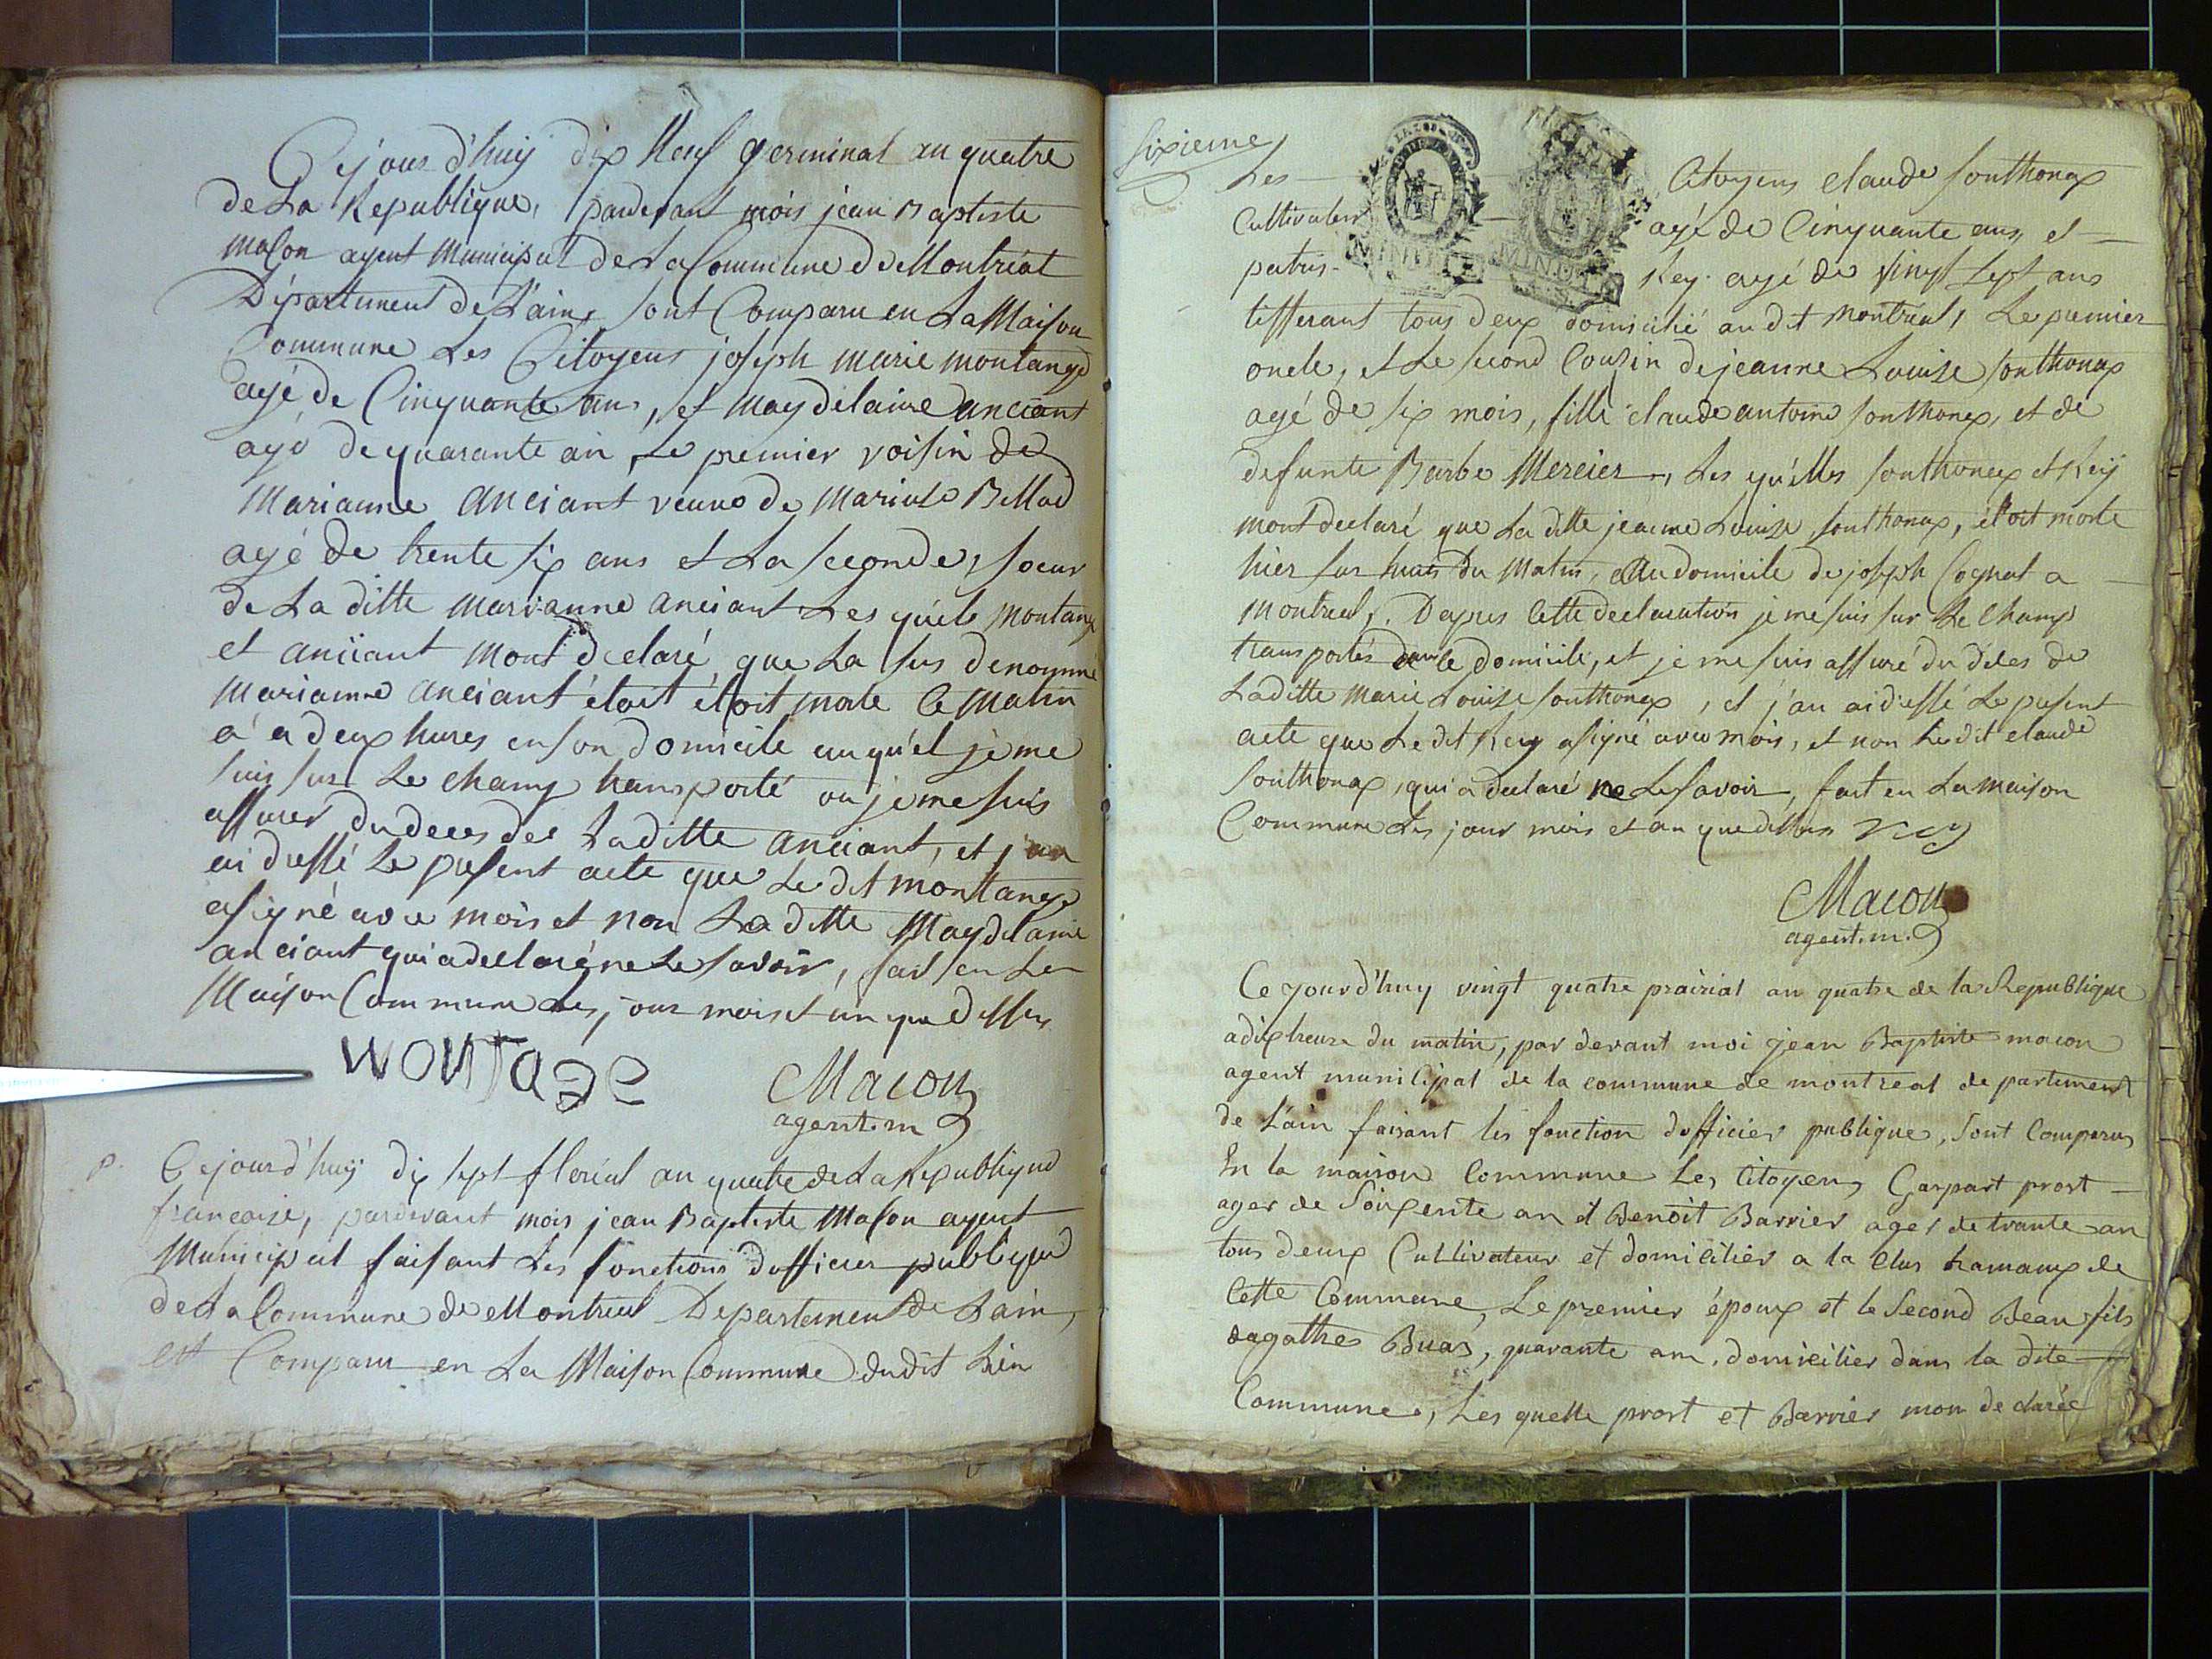 Cejourd'huy dix Neuf germinal an quatre
de La Republique, pardevant mois jean Baptiste
mason agent Municipal de La Commune de Montreal
Département de L'ain, sont Comparu en La Maison
Commune Les Citoyens joseph marie montange
agé de Cinquante ans, et magdelaine anciant
agé de quarante an, Le premier voisin de
Marianne anciant veuve de
agé de trente six ans et La seconde, soeur
de La ditte marianne anciant Les quéls montange
et anciant mont declaré que La sus denommé
Marianne anciant étoit étoit morte ce Matin
a a deux hures en son domicile auquél je me
suis sur Le champ transporté ou je me suis
assurer du deces de Laditte anciant, et j'an
ai dressé Le present acte que Le dit montange
a signé avec mois et non La ditte Magdelaine
anciant qui a declaré ne Le savoir, fait en La
Maison Commune Les jour mois et an que dessus
MONTAGE
Macon
agent.m
p. Cejourd'huy dix sept floréal an quatre de La Republique
francaize, pardevant mois jean Baptiste Mason agent
Municipal faisant Les fonctions dofficier publique
de La Commune de Montreal Departement de Lain,
est Comparu en La Maison Commune dudit Lieu
sixieme
Les Citoyens claude sonthonax
Cultivateur agé de Cinquante ans, et
patris- Rey. agé de vingt sept ans
MINUTE MINUTE
tisserant tous deux domicilié au dit montreal, Le premier
oncle, et Le second Cousin de jeanne Louise sonthonax
agé de six mois, fille claude antoine sonthonax, et de
defunte Barbe Mercier, Les quélles sonthonax et Rey
mont declaré que La ditte jeanne Louise sonthonax, étoit morte
hier sur huis du Matin, au domicile de joseph Cognat a
montreal, Dapres Cette declaration je me suis sur Le champ
transportés dans le domicile, et je me suis assuré du déces de
Laditte Marie Louise sonthonax, et j'an ai dressé Le present
acte que Le dit Rey a signé avec mois, et non Ledit claude
sonthonax, qui a declaré ne Le savoir, fait en La maison
Commune Les jour mois et an que dessus rey
Macon
agent.m.
Ce yourd'huy vingt quatre prairial an quatre de la Republique
a dix heure du matin, par devant moi jean Baptiste macon
agent municipal de la commune de montreal de partement
de L'ain faisant les fonction dofficier publique, sont Comparus
En la maison Commune Les Citoyens Gaspart prost
ager de Soixente an et Benoit Barrier ager de trante an
tous deux Cultivateur et domicilier a la Clus hamaux de
Cette Commune, Le premier époux et le Second Beau fils
dagathe Buas, quarante an, domicilier dans la dite
Commune, Les quelle prost et Barrier mon declarée